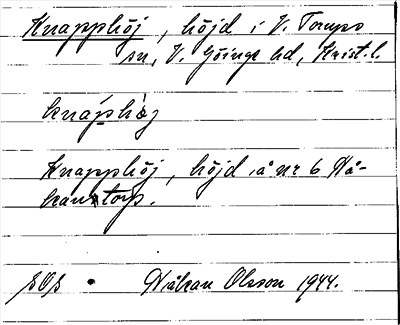 Knapphöj, höjd i V. Torups
sn, V. Göinge hd, Krist. l.
knáphö̀j
Knapphöj, höjd å nr 6 Hå-
kanstorp.
Håkan Olsson 1944.